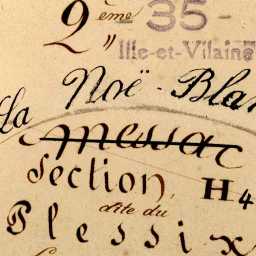 2ème 35-
" Ille-et-Vilaine
La Noë-Blan
Messac
Section H4
dite du
Plessix